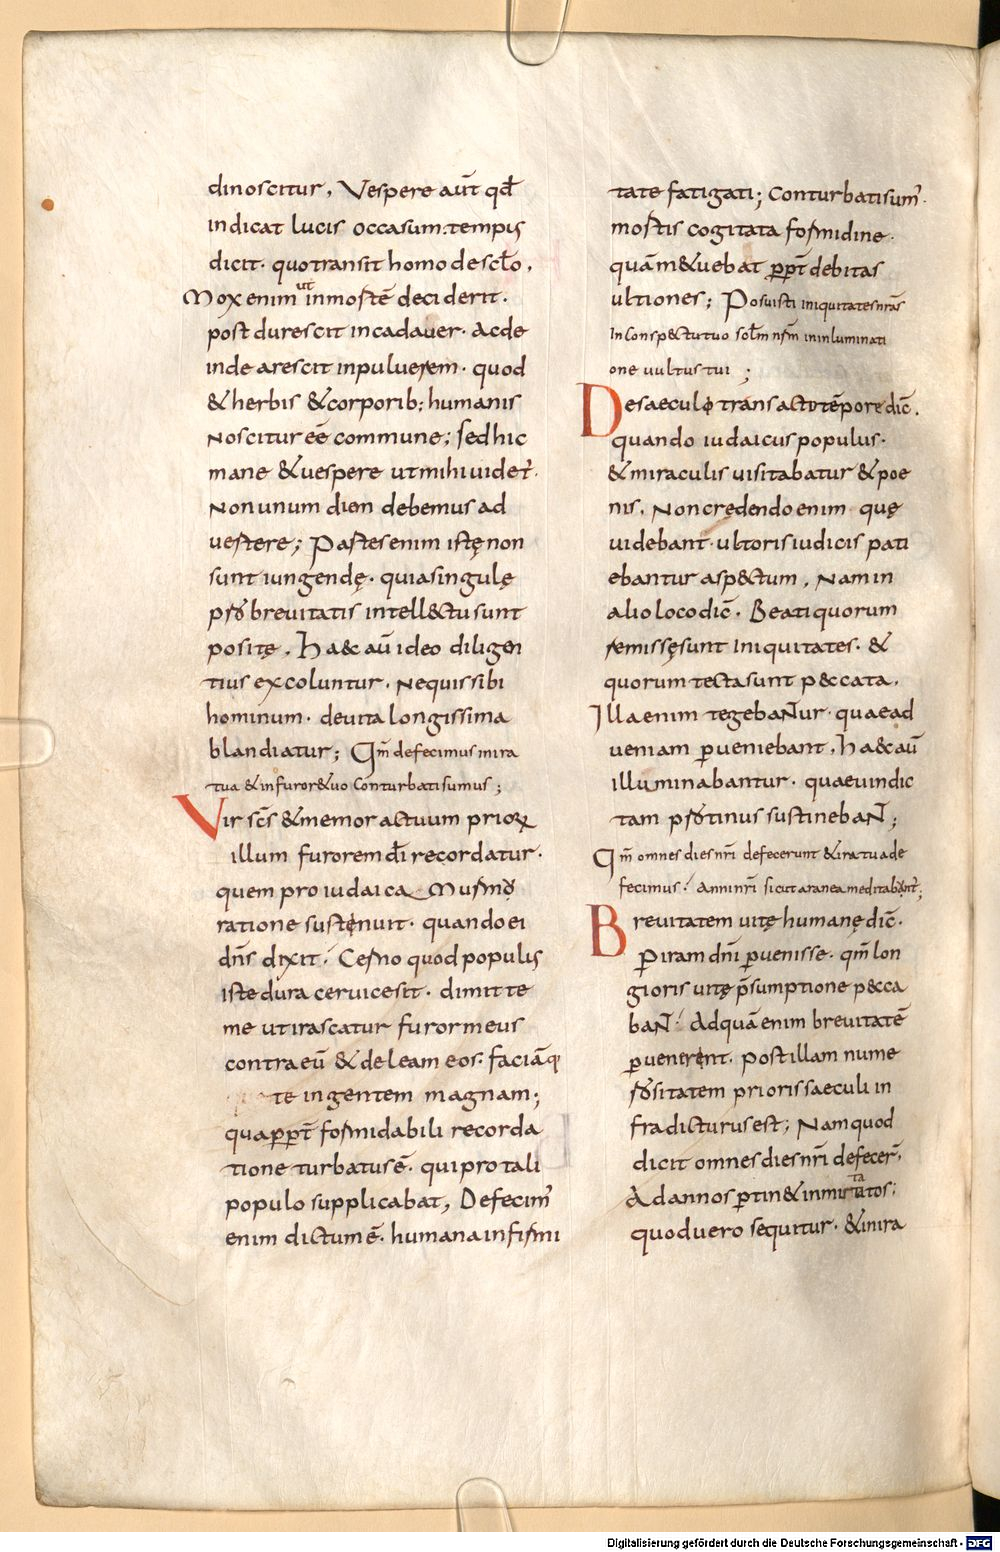 dinoscitur, Vespere aut̄ qđ
indicat lucis occasum. tempus
dicit. quo transit homo de sc̄lo,
Mox enim ut in mortē deciderit.
post durescit in cadauer. ac de
inde arescit in puluerem. quod
& herbis & corporib; humanis
noscitur eē commune; sed hic
mane & uespere ut mihi uidet̄.
Non unum diem debemus ad
uertere; Partes enim istę non
sunt iungendę. quia singulę
pro breuitatis intellectu sunt
positę. Haec aū ideo diligen
tius excoluntur. nequis sibi
hominum. de uita longissima
blandiatur; Qm̄ defecimus in ira
tua & in furore tuo conturbati sumus;
Vir sc̄s & memor actuum priorum
illum furorem dī recordatur.
quem pro iudaica murmu
ratione sustenuit. quando ei
dn̄s dixit. Cerno quod populus
iste dura ceruice sit. dimitte
me ut irascatur furor meus
contra eū & deleam eos. faciāq;
te in gentem magnam;
qua ppt̄ formidabili recorda
tione turbatus ē. qui pro tali
populo supplicabat, Defecim̄
enim dictum ē. humana infirmi
tate fatigati; Conturbati sum̄.
mortis cogitata formidine.
quām & uehebat ppt̄ debitas
ultiones; Posuisti iniquitates nr̄as
In conspectu tuo sc̄lm nr̄m in inluminati
one uultus tui;
De saeculo transacto tēpore dic̄.
quando iudaicus populus.
& miraculis uisitabatur & poe
nis. Non credendo enim quę
uidebant. ultoris iudicis pati
ebantur aspectum. Nam in
alio loco dic̄. Beati quorum
remissę sunt iniquitates. &
quorum tecta sunt peccata.
Illa enim tegebantur. quae ad
ueniam p̱ueniebant. Haec aū
illuminabantur. quae uindic
tam protinus sustinebant;
Qm̄ omnes dies nr̄i defecerunt & ira tua de
fecimus. Anni nr̄i sicut aranea meditabunt̄;
Breuitatem uitę humanę dic̄.
P̱ iram dn̄i p̱uenisse. qm̄ lon
gioris uitę p̄sumptione pecca
bant. Ad quā enim breuitatē
p̱uenerint. post illam nume
rositatem prioris saeculi in
fra dicturus est; Nam quod
dicit omnes dies nr̄i defecer̄.
Ad annos p̱tin& inmutatos;
quod uero sequitur. & in ira
Digitalisierung gefördert durch die Deutsche Forschungsgemeinschaft - DFG